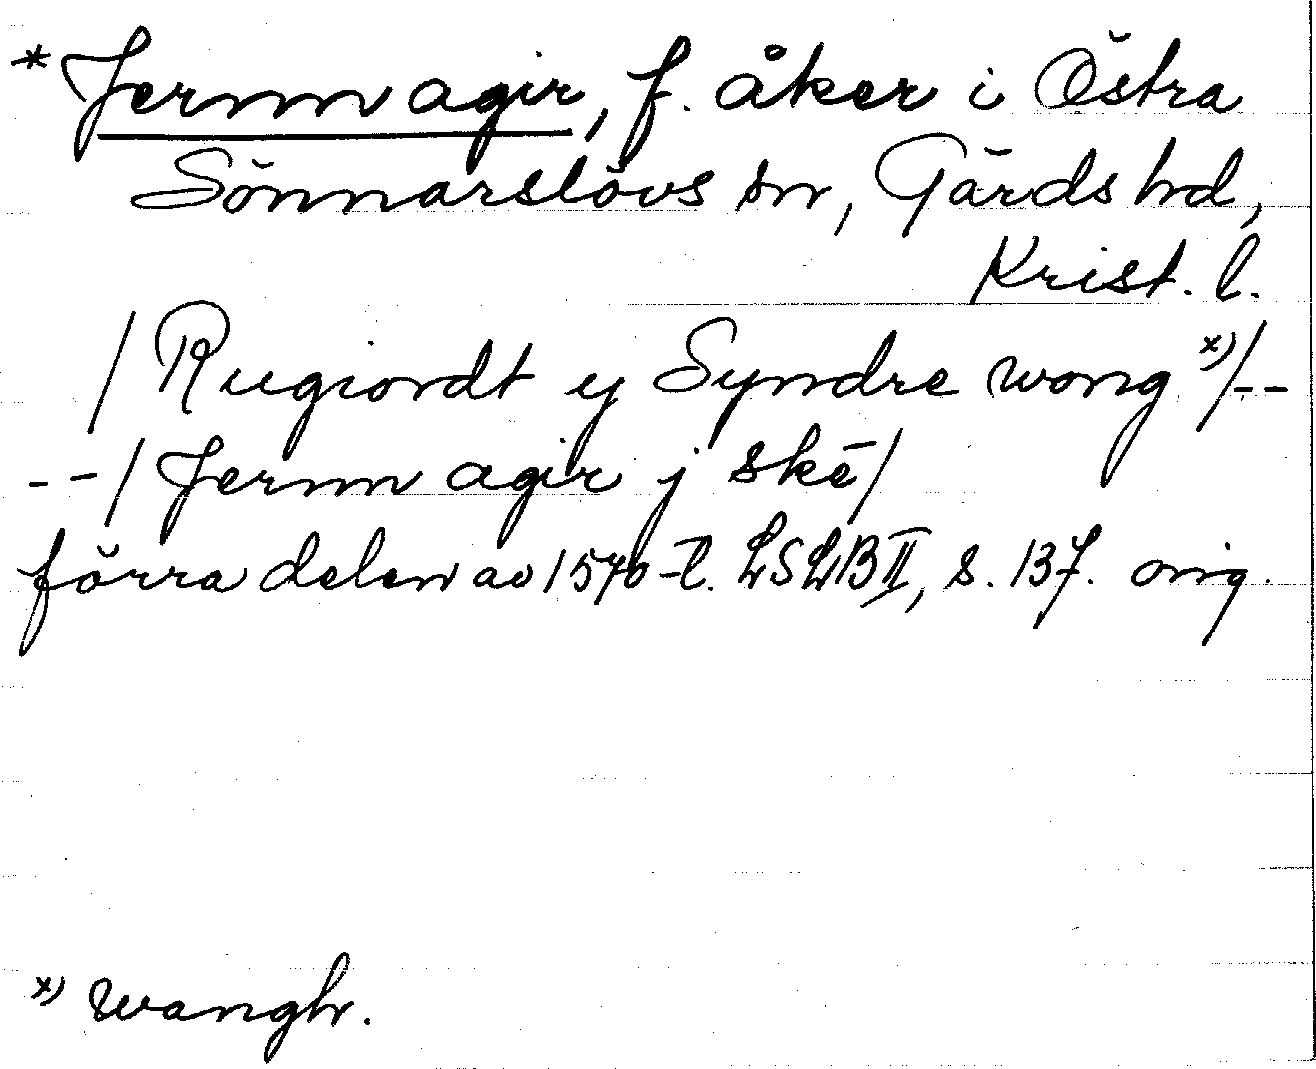 * Jernn agir, f. åker i Östra
Sönnarslövs sn, Gärds hd,
Krist. l.
/ Rugiordt y Syndre wong x) / --
-- / Jernn agir j skē /
förra delen av 1570-t. LSLB II, s. 137. orig.
x) wangh.